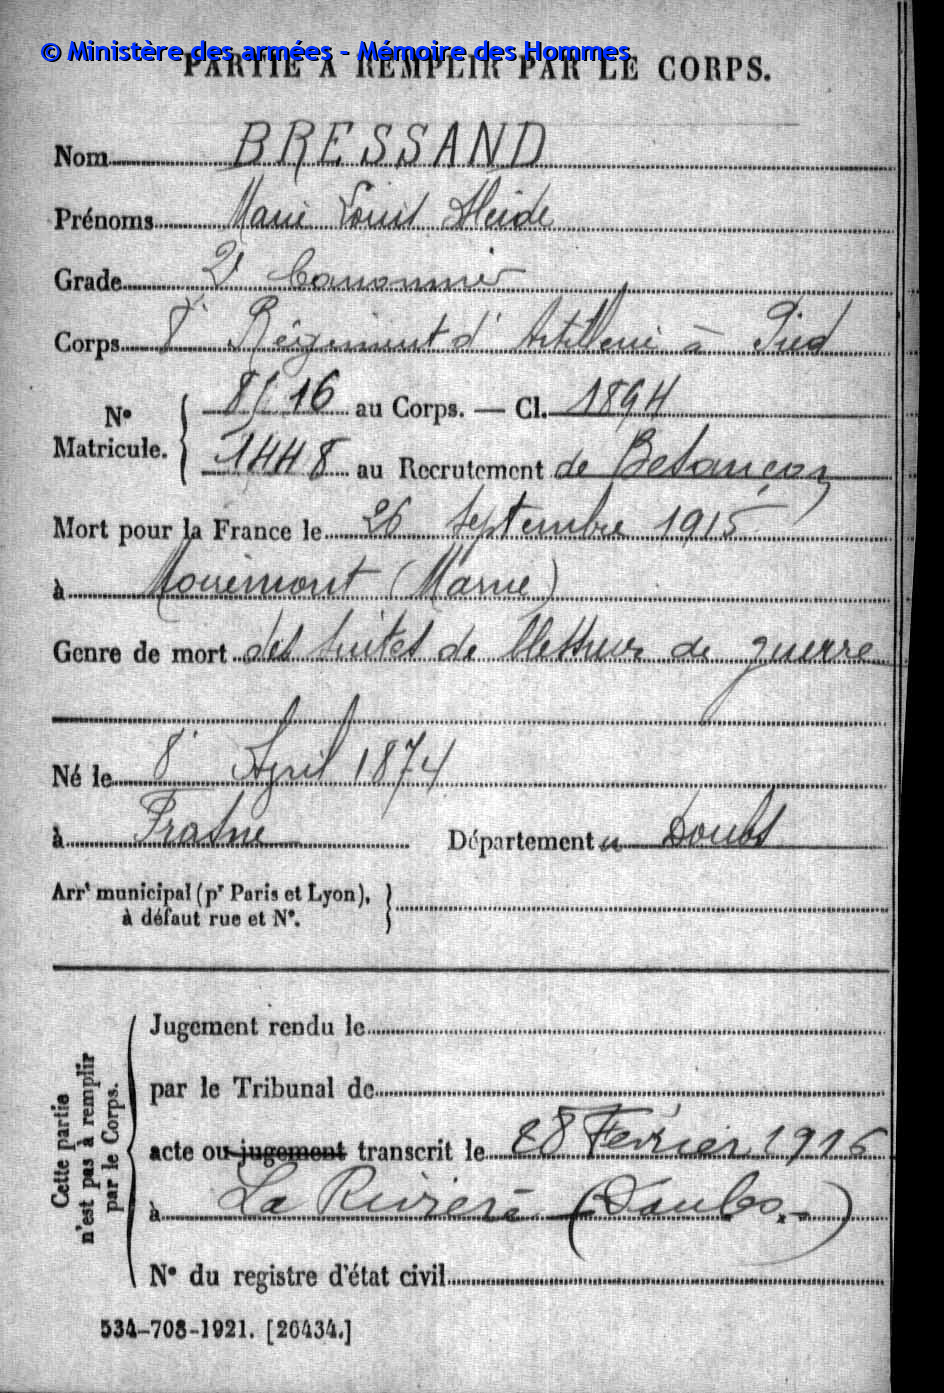 © Ministère des armées - Mémoire des Hommes
PARTIE A REMPLIR PAR LE CORPS.
Nom BRESSAND
Prénoms Marie Louis Aleide
Grade 2e Canonnier
Corps 8e Régiment d'Artillerie à Pied
No Matricule. 8/16 au Corps. — Cl. 1894
1448 au Recrutement de Besançon
Mort pour la France le 26 Septembre 1915
à Moiremont (Marne)
Genre de mort des suites de blessures de guerre
Né le 8 April 1874
à Frasne Département u Doubs
Arrt municipal (pr Paris et Lyon),
à défaut rue et No.
Cette partie
n'est pas à remplir
par le Corps.
Jugement rendu le
par le Tribunal de
acte ou jugement transcrit le 28 Février 1916
à La Rivière (Doubs.-)
No du registre d'état civil
534-708-1921. [26434.]